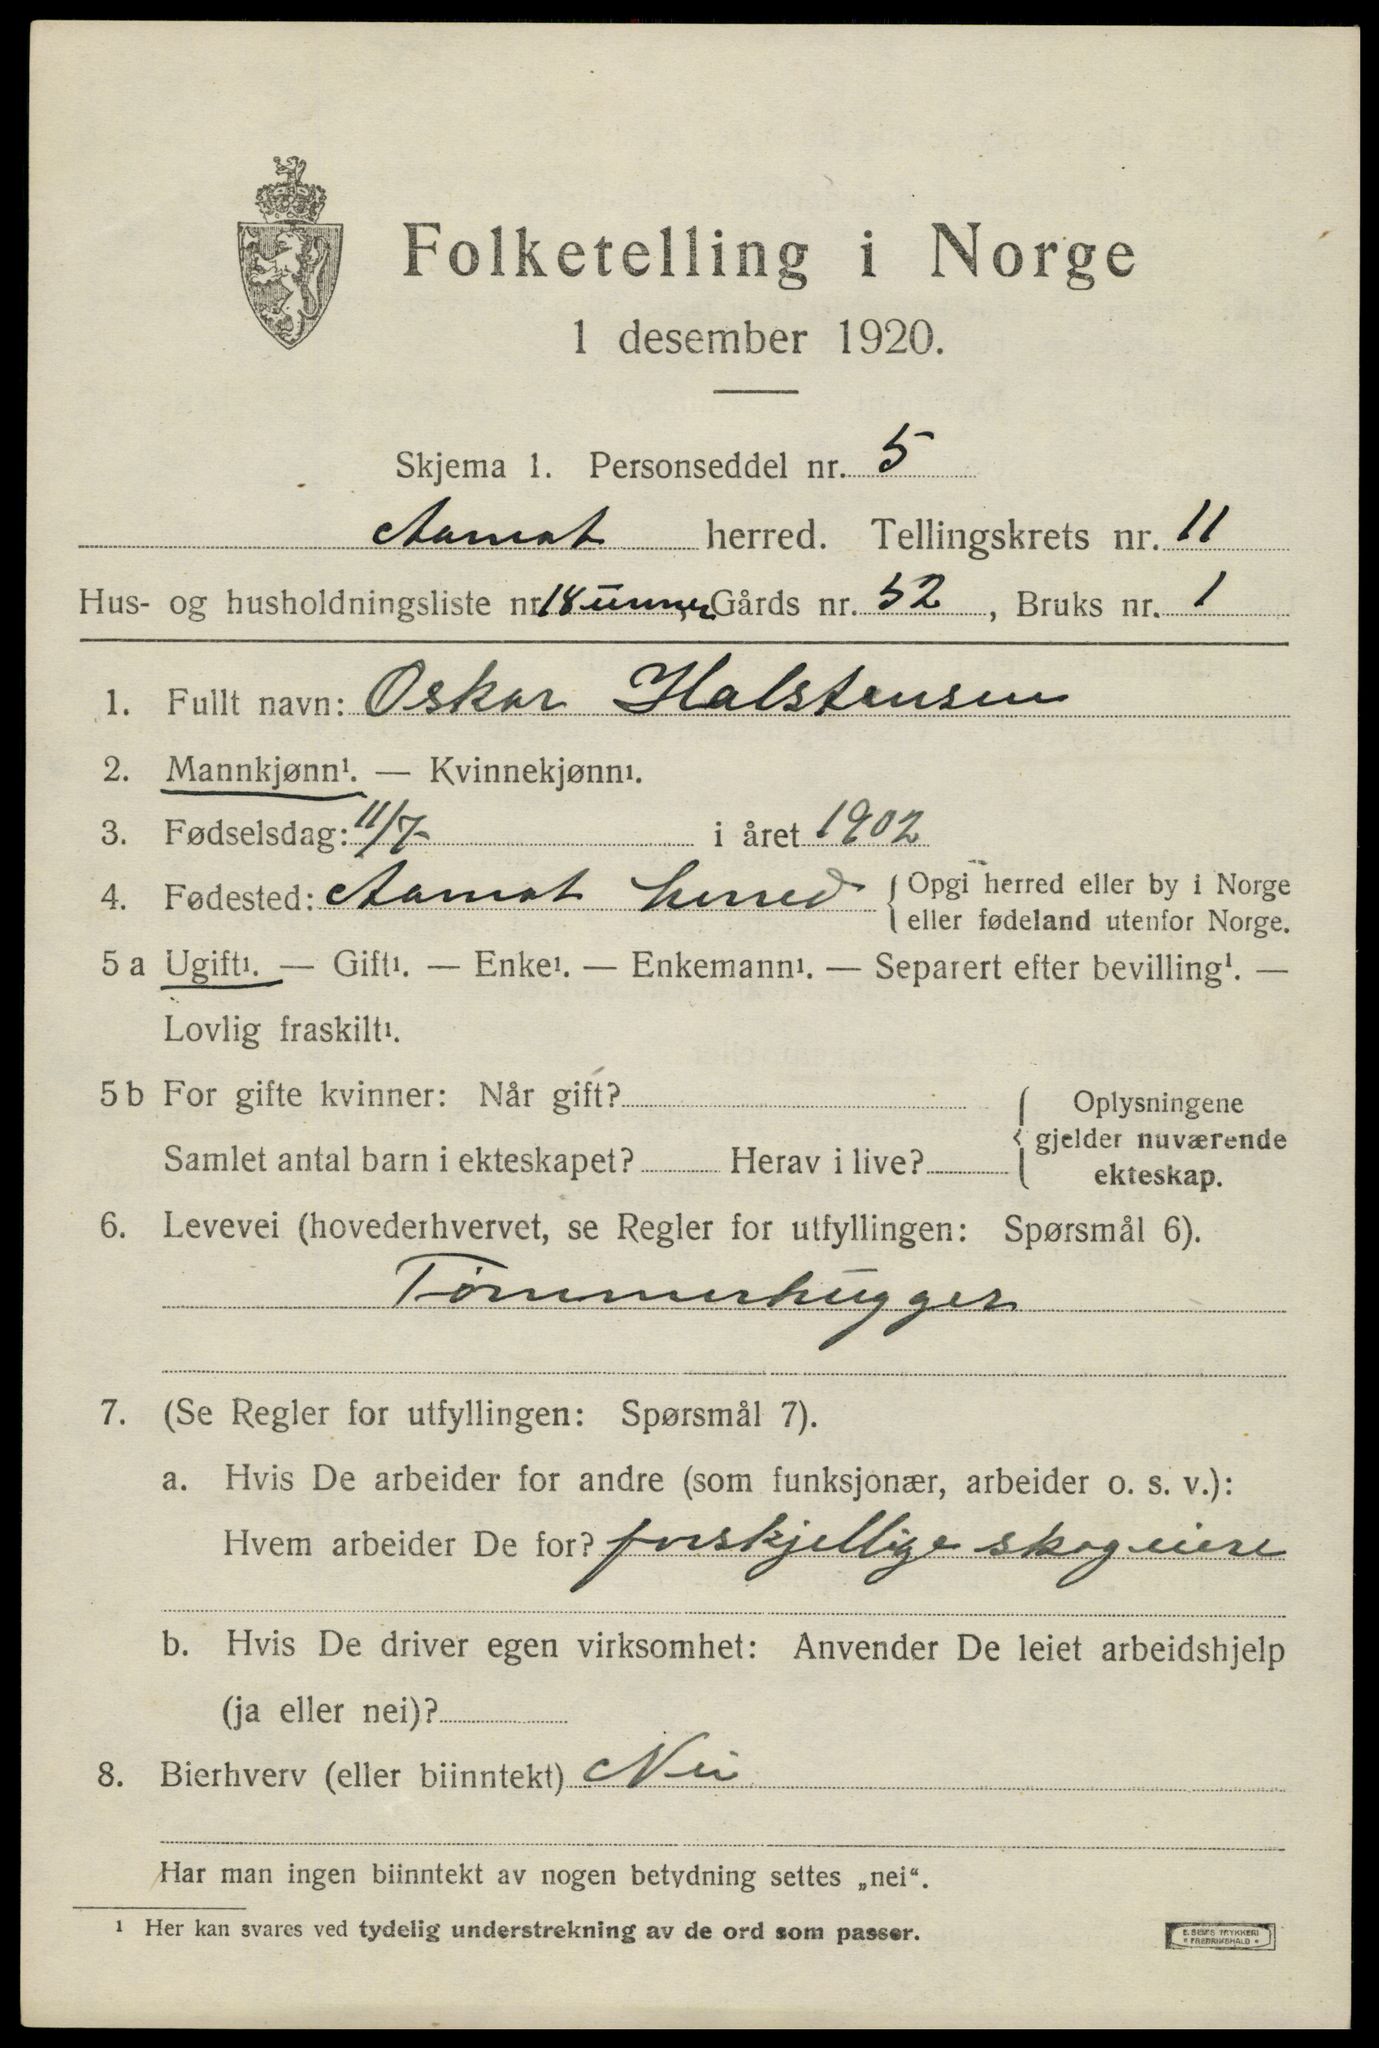 Folketelling i Norge
1 desember 1920.
Skjema 1. Personseddel nr. 5
Aamot herred. Tellingskrets nr. 11
Hus- og husholdningsliste nr. 18 Gårds nr. 52, Bruks nr. 1
1. Fullt navn: Oskar Halstensen
2. Mannkjønn¹. — Kvinnekjønn¹.
3. Fødselsdag: 11/7 i året 1902
4. Fødested: Aamot herred { Opgi herred eller by i Norge
eller fødeland utenfor Norge.
5 a Ugift¹. — Gift¹. — Enke¹. — Enkemann¹. — Separert efter bevilling¹. —
Lovlig fraskilt¹.
5 b For gifte kvinner: Når gift?
Samlet antal barn i ekteskapet? Herav i live?
{ Oplysningene
gjelder nuværende
ekteskap.
6. Levevei (hovederhvervet, se Regler for utfyllingen: Spørsmål 6).
Tømmerhugger
7. (Se Regler for utfyllingen: Spørsmål 7).
a. Hvis De arbeider for andre (som funksjonær, arbeider o. s. v.):
Hvem arbeider De for? forskjellige skogeiere
b. Hvis De driver egen virksomhet: Anvender De leiet arbeidshjelp
(ja eller nei)?
8. Bierhverv (eller biinntekt) Nei
Har man ingen biinntekt av nogen betydning settes „nei“.
¹ Her kan svares ved tydelig understrekning av de ord som passer.
E. SEM'S TRYKKERI
FREDRIKSHALD